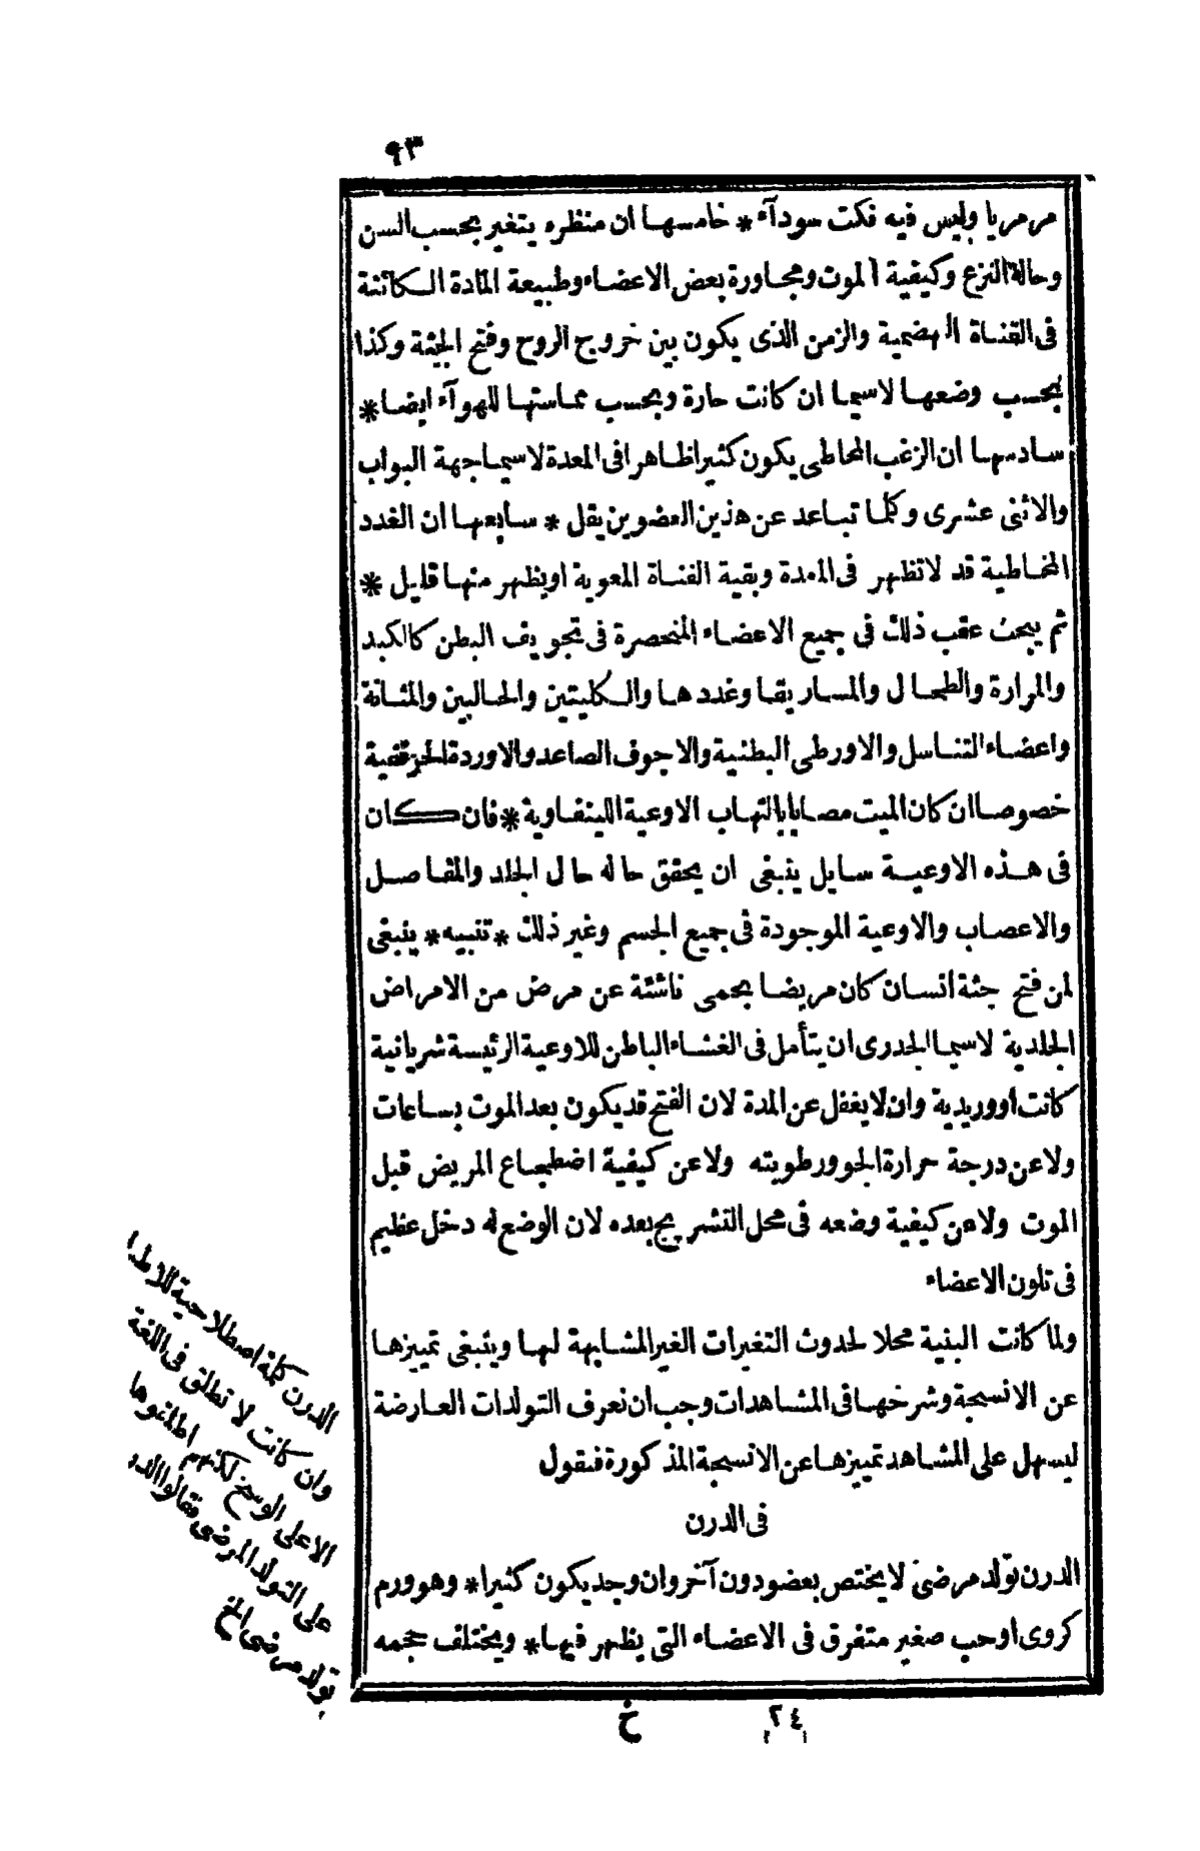 ٩٣
مرمريا وليس فيه نكت سودآء * خامسها ان منظره يتغير بحسب السن
وحالة النزع وكيفية الموت ومجاورة بعض الاعضاء وطبيعة المادة الكائنة
فى القناة الهضمية والزمن الذى يكون بين خروج الروح وفتح الجثة وكذا
بحسب وضعها لاسيما ان كانت حارة وبحسب مماستها للهوآء ايضا *
سادسها ان الزغب المخاطى يكون كثيرا ظاهرا فى المعدة لاسيما جهة البواب
والاثنى عشرى وكلما تباعد عن هذين العضوين يقل * سابعها ان الغدد
المخاطية قد لا تظهر فى المعدة وبقية القناة المعوية او يظهر منها قليل *
ثم يبحث عقب ذلك فى جميع الاعضاء المنحصرة فى تجويف البطن كالكبد
والمرارة والطحال والمساريقا وغددها والكليتين والحالبين والمثانة
واعضاء التناسل والاورطى البطنية والاجوف الصاعد والاوردة الحرقفية
خصوصا ان كان الميت مصابا بالتهاب الاوعية اللينفاوية * فان كان
فى هذه الاوعية سايل ينبغى ان يحقق حاله حال الجلد والمفاصل
والاعصاب والاوعية الموجودة فى جميع الجسم وغير ذلك * تنبيه * ينبغى
لمن فتح جثة انسان كان مريضا بحمى ناشئة عن مرض من الامراض
الجلدية لاسيما الجدرى ان يتأمل فى الغشاء الباطن للاوعية الرئيسة شريانية
كانت او وريدية وان لا يغفل عن المدة لان الفتح قد يكون بعد الموت بساعات
ولا عن درجة حرارة الجو ورطوبته ولا عن كيفية اضطجاع المريض قبل
الموت ولا عن كيفية وضعه فى محل التشريح بعده لان الوضع له دخل عظيم
فى تلون الاعضاء
ولما كانت البنية محلا لحدوث التغيرات الغير المشابهة لها وينبغى تمييزها
عن الانسجة وشرخها فى المشاهدات وجب ان نعرف التولدات العارضة
ليسهل على المشاهد تمييزها عن الانسجة المذكورة فنقول
فى الدرن
الدرن تولد مرضى لا يختص بعضو دون آخر وان وجد يكون كثيرا * وهو ورم
كروى او حب صغير متفرق فى الاعضاء التى يظهر فيها * ويختلف حجمه
٢٤
خ
الدرن كلمة اصطلاحية للاطبا
وان كانت لا تطلق فى اللغة
الا على الوسخ لكنهم اطلقوها
على التولد المرضى فقالوا الدرن
تولد مرضى الخ